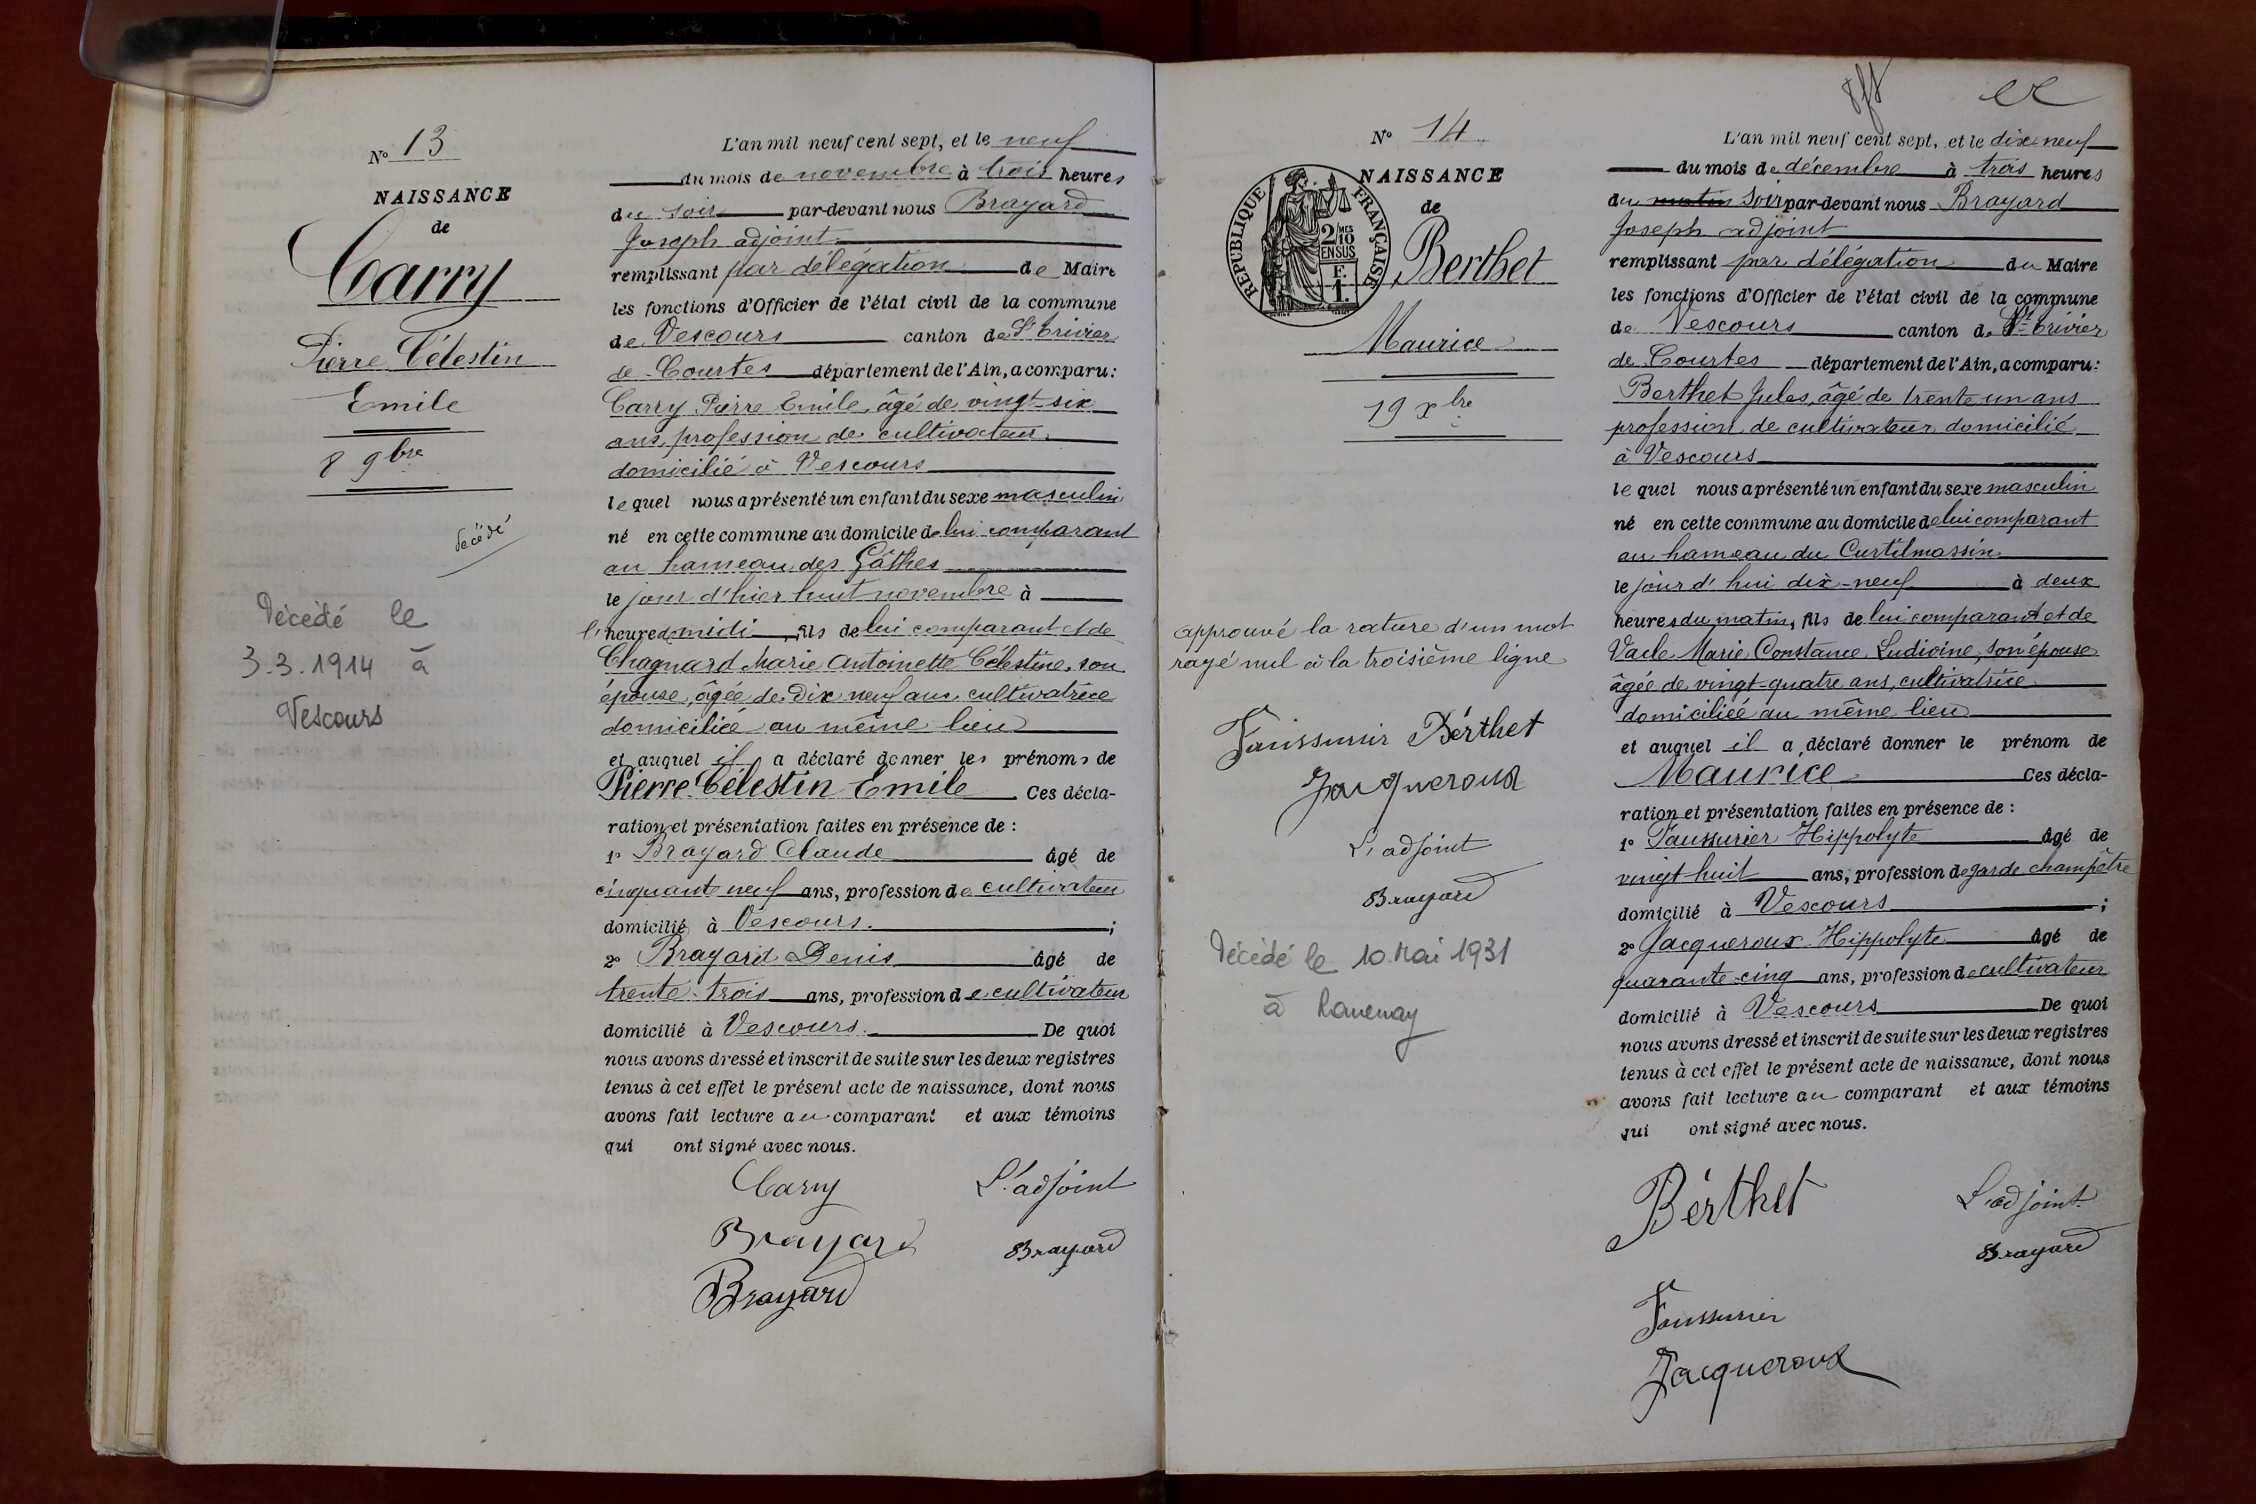 N° 13
NAISSANCE
de
Carry
Pierre Célestin
Emile
8 9bre
décédé
Décédé le
3.3.1914 à
Vescours
L'an mil neuf cent sept, et le neuf
du mois de novembre à trois heures
du soir par-devant nous Brayard
Joseph adjoint
remplissant par délégation de Maire
les fonctions d'Officier de l'état civil de la commune
de Vescours canton de St Trivier
de Courtes département de l'Ain, a comparu :
Carry Pierre Emile, âgé de vingt-six
ans, profession de cultivateur
domicilié à Vescours
lequel nous a présenté un enfant du sexe masculin
né en cette commune au domicile de lui comparant
au hameau des Gâthes
le jour d'hier huit novembre à
l'heure de midi, fils de lui comparant et de
Chagnard Marie Antoinette Célestine, son
épouse, âgée de dix neuf ans cultivatrice
domiciliée au même lieu
et auquel il a déclaré donner les prénoms de
Pierre Célestin Emile Ces décla-
ration et présentation faites en présence de :
1° Brayard Claude âgé de
cinquante neuf ans, profession de cultivateur
domicilié à Vescours. ;
2° Brayard Denis âgé de
trente-trois ans, profession de cultivateur
domicilié à Vescours. De quoi
nous avons dressé et inscrit de suite sur les deux registres
tenus à cet effet le présent acte de naissance, dont nous
avons fait lecture au comparant et aux témoins
qui ont signé avec nous.
Carry L'adjoint
Brayard Brayard
Brayard
N° 14
NAISSANCE
de
REPUBLIQUE FRANÇAISE
2 MES
10
EN SUS
F.
1.
Berthet
Maurice
19 xbre
approuvé la rature d'un mot
rayé nul à la troisième ligne
Faussurier Bérthet
Jacqueroux
L'adjoint
Brayard
Décédé le 10 Mai 1931
à
L'an mil neuf cent sept, et le dix-neuf
du mois de décembre à trois heures
du matin soir par-devant nous Brayard
Joseph adjoint
remplissant par délégation du Maire
les fonctions d'Officier de l'état civil de la commune
de Vescours canton de St Trivier
de Courtes département de l'Ain, a comparu :
Berthet Jules, âgé de trente un ans
profession de cultivateur domicilié
à Vescours
lequel nous a présenté un enfant du sexe masculin
né en cette commune au domicile de lui comparant
au hameau du Curtilmassin
le jour d'hui dix-neuf à deux
heures du matin, fils de lui comparant et de
Vacle Marie Constance Ludivine, son épouse
âgée de vingt-quatre ans, cultivatrice
domiciliée au même lieu
et auquel il a déclaré donner le prénom de
Maurice Ces décla-
ration et présentation faites en présence de :
1° Faussurier Hippolyte âgé de
vingt huit ans, profession de garde champêtre
domicilié à Vescours ;
2° Jacqueroux Hippolyte âgé de
quarante-cinq ans, profession de cultivateur
domicilié à Vescours De quoi
nous avons dressé et inscrit de suite sur les deux registres
tenus à cet effet le présent acte de naissance, dont nous
avons fait lecture au comparant et aux témoins
qui ont signé avec nous.
Bérthet L'adjoint
Brayard
Faussurier
Jacqueroux